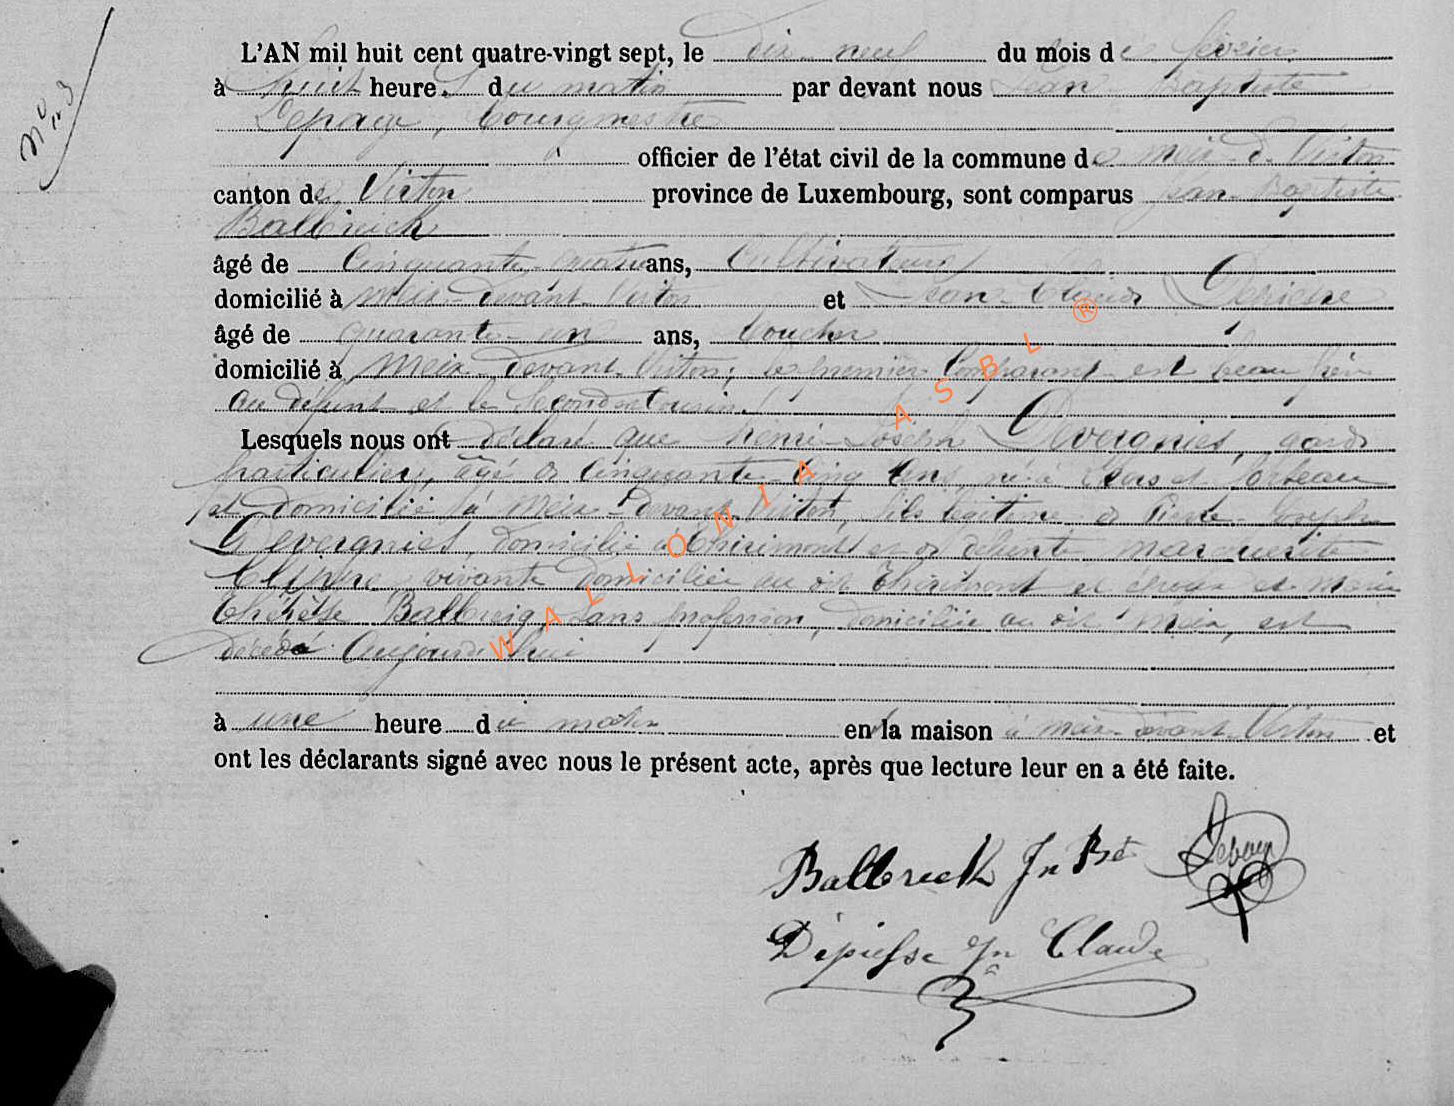 L'AN mil huit cent quatre-vingt sept, le dix neuf du mois de février
à huit heures du matin par devant nous Jean Baptiste
Lepage, bourgmestre
officier de l'état civil de la commune de Meix-d-Virton
canton de Virton province de Luxembourg, sont comparus Jean Baptiste
Balbrick
âgé de cinquante quatre ans, cultivateur
domicilié à Meix-devant-Virton et Jean-Claude
âgé de quarante un ans, boucher
domicilié à Meix devant Virton, le premier comparant est beau frère
au défunt et le second cousin.
Lesquels nous ont déclaré que Henri-Joseph Devergnies, garde
particulier, âgé de cinquante cinq ans, né à
et domicilié à Meix devant Virton, fils légitime de Pierre Joseph
Devergnies, domicilié à Thirimont et de défunte Marguerite
vivante domiciliée au dit Thirimont et époux de Marie
Thérèse Balbrick, sans profession, domiciliée au dit Meix, est
décédé aujourd'hui
à une heure du matin en la maison à Meix devant Virton et
ont les déclarants signé avec nous le présent acte, après que lecture leur en a été faite.
N° 3
Balbrick Jn Bte Lepage
Depiesse Jn Claude
WALLONIA ASBL ®